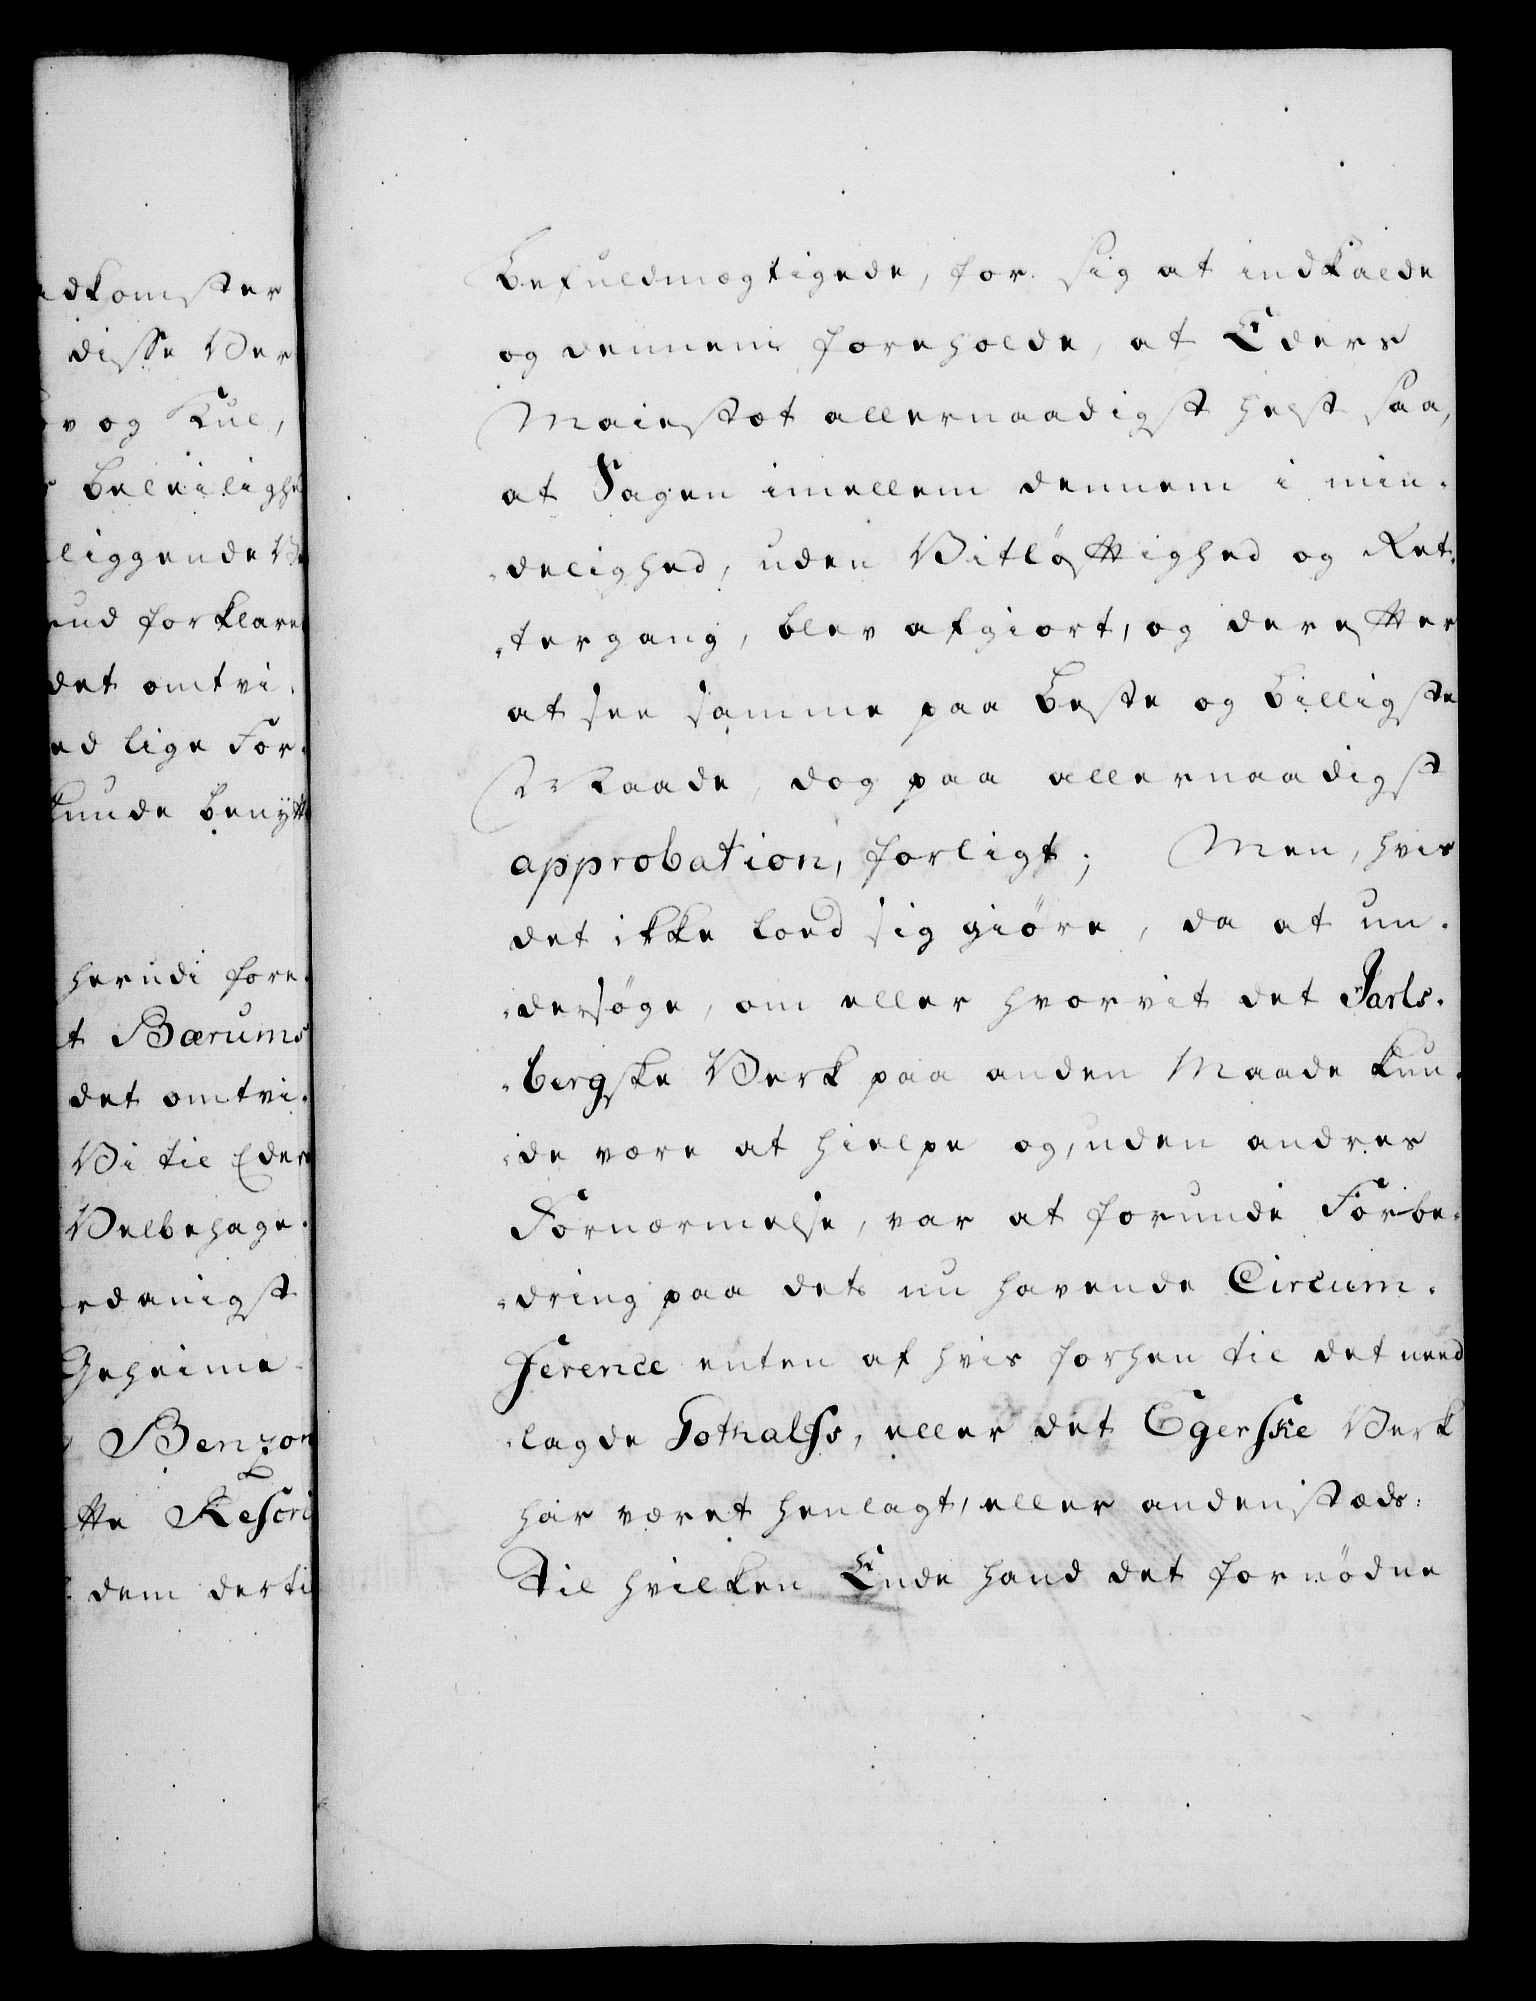 dkomster
disse Ver
v og Kul,
beleilighe
liggende Ve
und forklaret
det omtvi-
ed lige For-
kunde benytt
herudi fore-
t Bærums
det omtvi-
Vi til Eders
Velbehage-
rdanigst
Geheime-
Benzon
tte Rescri
dem derti
Befuldmægtigede, for sig at indkalde
og dennem foreholde, at Eders
Maiestæt allernaadigst helst saa,
at Sagen imellem dennem i min-
-delighed, uden Vitløftighed og Ret-
-tergang, blev afgiort, og derefter
at see samme paa beste og billigste
Maade, dog paa allernaadigst
approbation, forligt; Men, hvis
det ikke loed sig giøre, da at un-
-dersøge, om eller hvorvit det Jarls-
-bergske Verk paa anden Maade kun-
-de være at hielpe og, uden andres
Fornærmelse, var at forunde Forbe-
-dring paa dets nu havende Circum-
ference enten af hvis forhen til det need
-lagde Fothalss, eller det Egerske Verk
har været henlagt, eller andenstæds:
Til hvilken Ende hand det fornødne